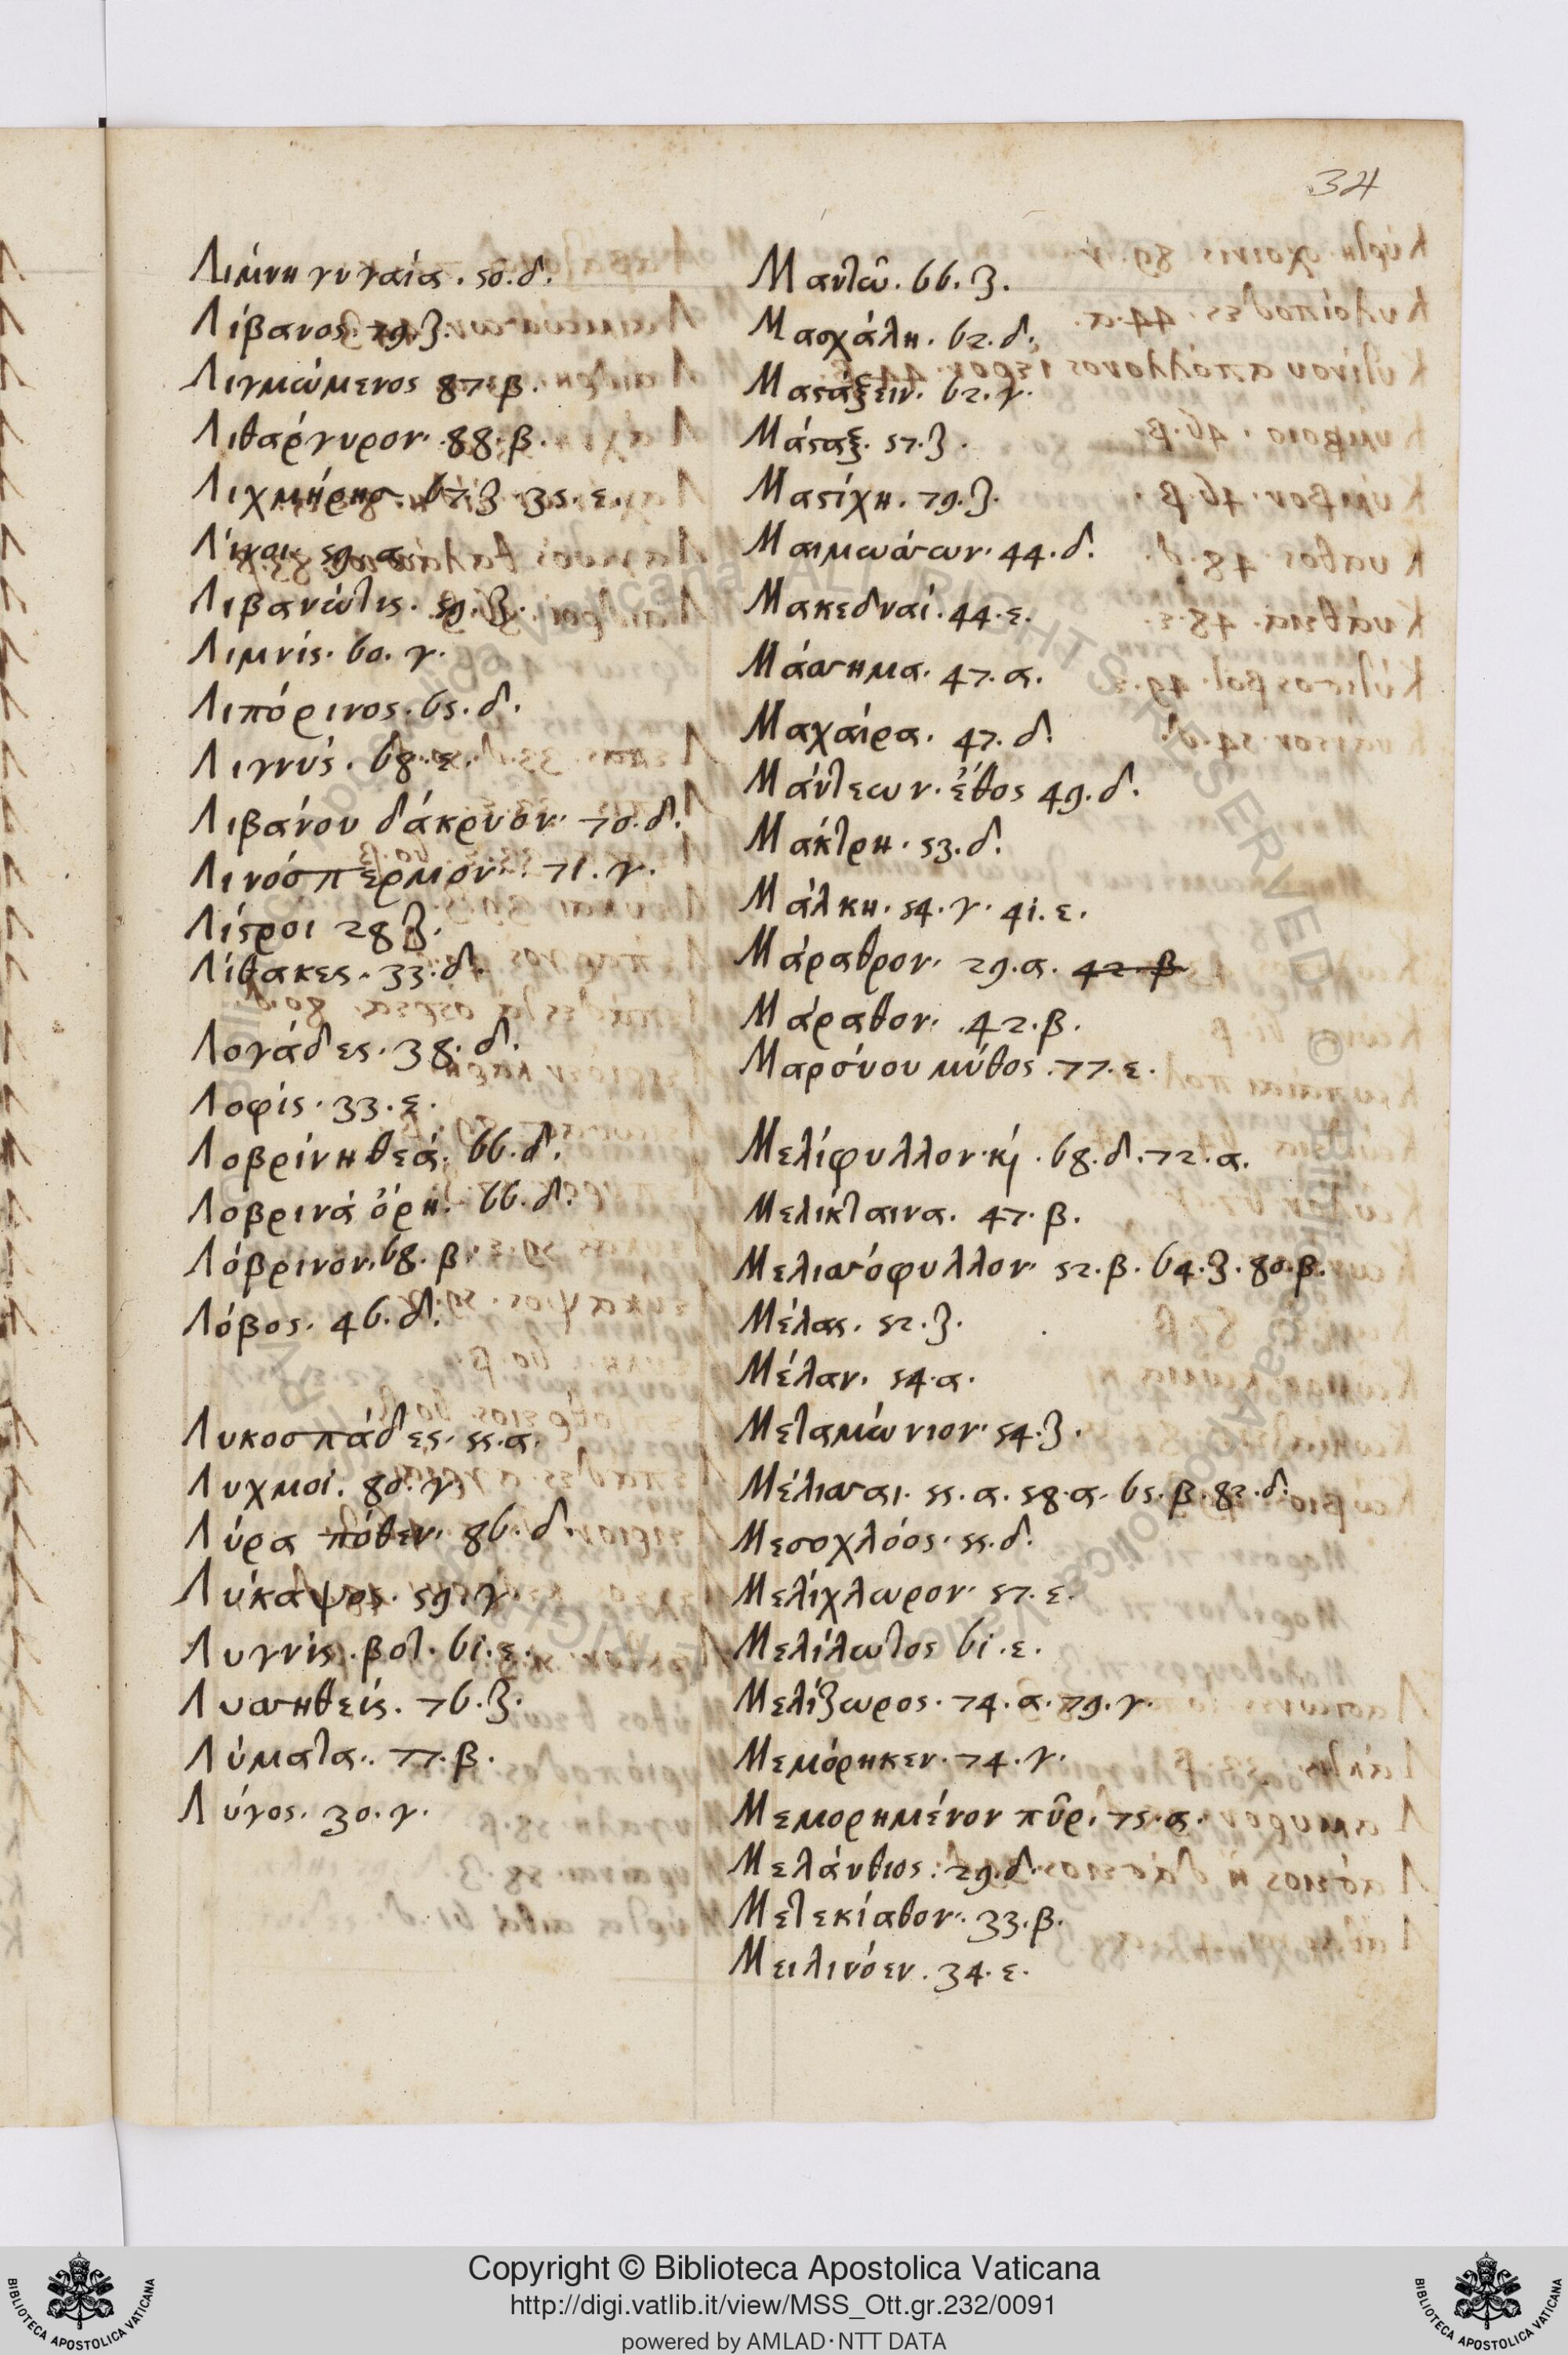 34
Λίμνη γυγαία. 50. δ.
Λίβανος. 79. ζ.
Λιγμώμενος 87. β.
Λιθαρ́γυρον. 88. β.
Λιχμήρης. 67. ζ. 35. ε.
Λίνοι. 59. α.
Λιβανώτις. 59. ζ.
Λιμνίς. 60. γ.
Λιπόρινος. 65. δ.
Λιγνύς. 68. ε.
Λιβάνου δάκρυον. 70. δ.
Λινόσπερμον. 71. γ.
Λίστροι 28 ζ.
Λίθακες. 33. δ.
Λογάδες. 38. δ.
Λοφίς. 33. ε.
Λοβρίνη θεά. 66. δ.
Λοβρινά ὄρη. 66. δ.
Λόβρινον. 68. β.
Λόβος. 46. δ.
Λυκοσπάδες. 55. α.
Λυχμοί. 80. γ.
Λύρα πόθεν. 86. δ.
Λύκαψος. 59. γ.
Λυγνίς. βοτ. 61. ε.
Λυσσηθείς. 76. ζ.
Λύματα. 77. β.
Λύγος. 30. γ.
Μαντῶ. 66. ζ.
Μασχάλη. 62. δ.
Μαστάξειν. 62. γ.
Μάσταξ. 57. ζ.
Μαστίχη. 79. ζ.
Μαιμώσσων. 44. δ.
Μακεδναί. 44. ε.
Μάσσημα. 47. α.
Μαχαίρα. 47. δ.
Μάντεων. ἔθος 49. δ.
Μάκτρη. 53. δ.
Μάλκη. 54. γ. 41. ε.
Μάραθρον. 29. α. 42. β
Μάραθον. 42. β.
Μαρσύου μύθος. 77. ε.
Μελίφυλλον. κὶ. 68. δ. 72. α.
Μελίκταινα. 47. β.
Μελισσόφυλλον. 52. β. 64. ζ. 80. β.
Μέλας. 52. ζ.
Μέλαν. 54. α.
Μεταμώνιον. 54. ζ.
Μέλισσαι. 55. α. 58. α. 65. β. 82. δ.
Μεσοχλόος. 55. δ.
Μελίχλωρον. 57. ε.
Μελίλωτος 61. ε.
Μελίζωρος. 74. α. 79. γ.
Μεμόρηκεν. 74. γ.
Μεμορημένον πῦρ. 75. α.
Μελάνθιος. 29. δ.
Μετεκίαθον. 33. β.
Μειλινόεν. 34. ε.
Copyright © Biblioteca Apostolica Vaticana
http://digi.vatlib.it/view/MSS_Ott.gr.232/0091
powered by AMLAD·NTT DATA
BIBLIOTECA APOSTOLICA VATICANA
BIBLIOTECA APOSTOLICA VATICANA